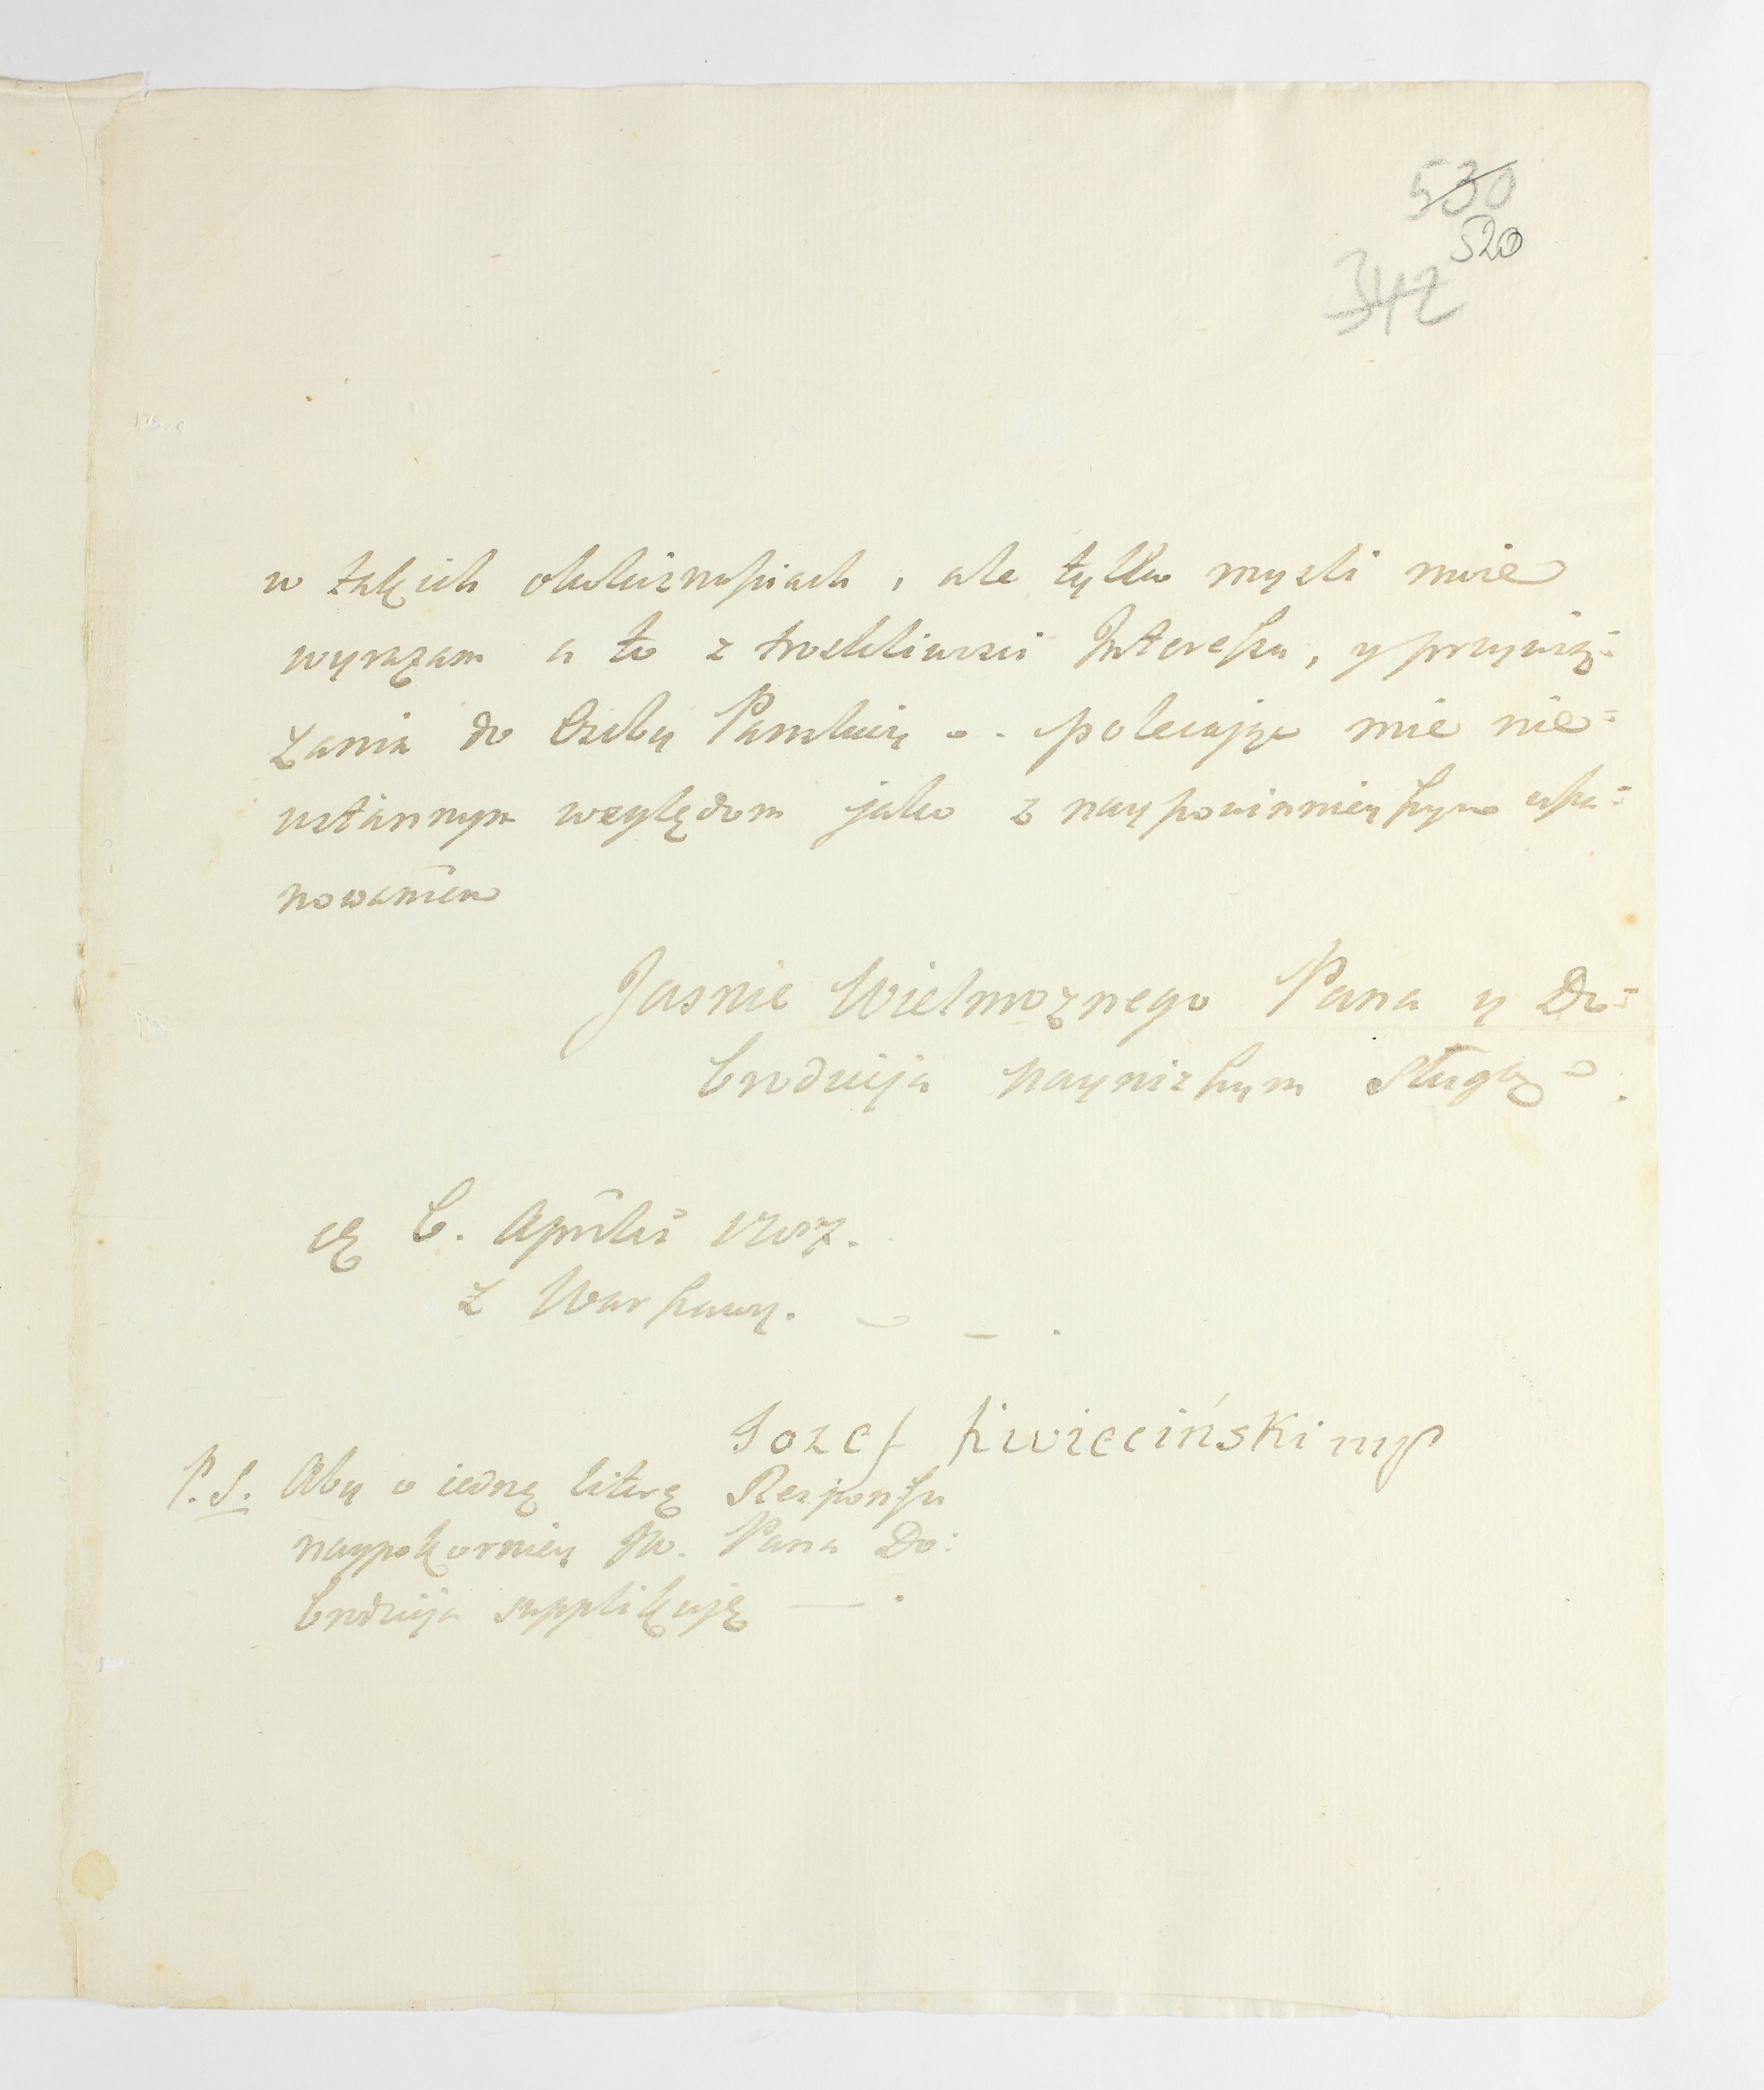 530
520
342
w takich okolicznościach, ale tylko myśli moie
wyrazam a to z troskliwości Interessu, y przywią=
zania do Osoby Pańskiey - . polecaiąc mie nie=
ustannym względom jako z naypowinnieyszym usza=
nowaniem
Jasnie Wielmoznego Pana y Do=
brodzieja Nayniższym Sługą .
6. Aprilis
z Warszawy. - - .
Jozef Kwieciński mp
P.S. Aby o iedną literę Responsu
naypokorniey JW. Pana Do:
brodzieja supplikuję — .